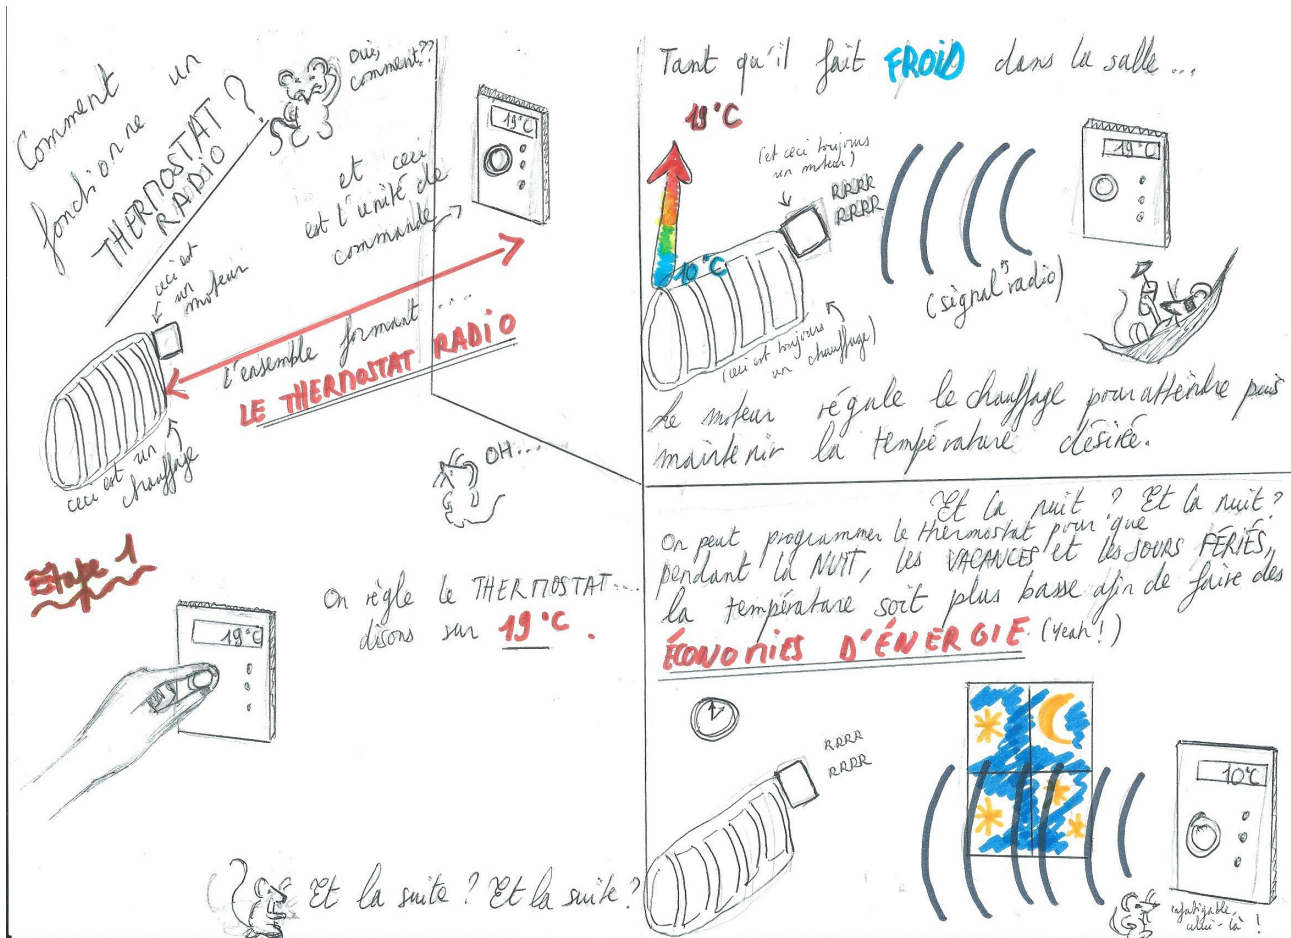 Comment un
fonctionne un
THERMOSTAT
RADIO ?
Ouéé,
comment??
19°C
et ceci
est l'unité de
commande
ceci est
un
moteur
l'ensemble formant ....
LE THERMOSTAT RADIO
ceci est un
chauffage
OH...
Etape 1
19°C
On règle le THERMOSTAT...
disons sur 19°C.
Et la suite ? Et la suite ?
Tant qu'il fait FROID dans la salle...
19°C
(et ceci toujours
un moteur)
RRRR
RRRR
19°C
10°C
(signal radio)
(ceci est toujours
un chauffage)
Le moteur régule le chauffage pour atteindre puis
maintenir la température désirée.
Et la nuit ? Et la nuit ?
On peut programmer le thermostat pour que
pendant la NUIT, les VACANCES et les JOURS FÉRIÉS,
la température soit plus basse afin de faire des
ÉCONOMIES D'ÉNERGIE. (yeah !)
RRRR
RRRR
10°C
infatigable,
celui-là !